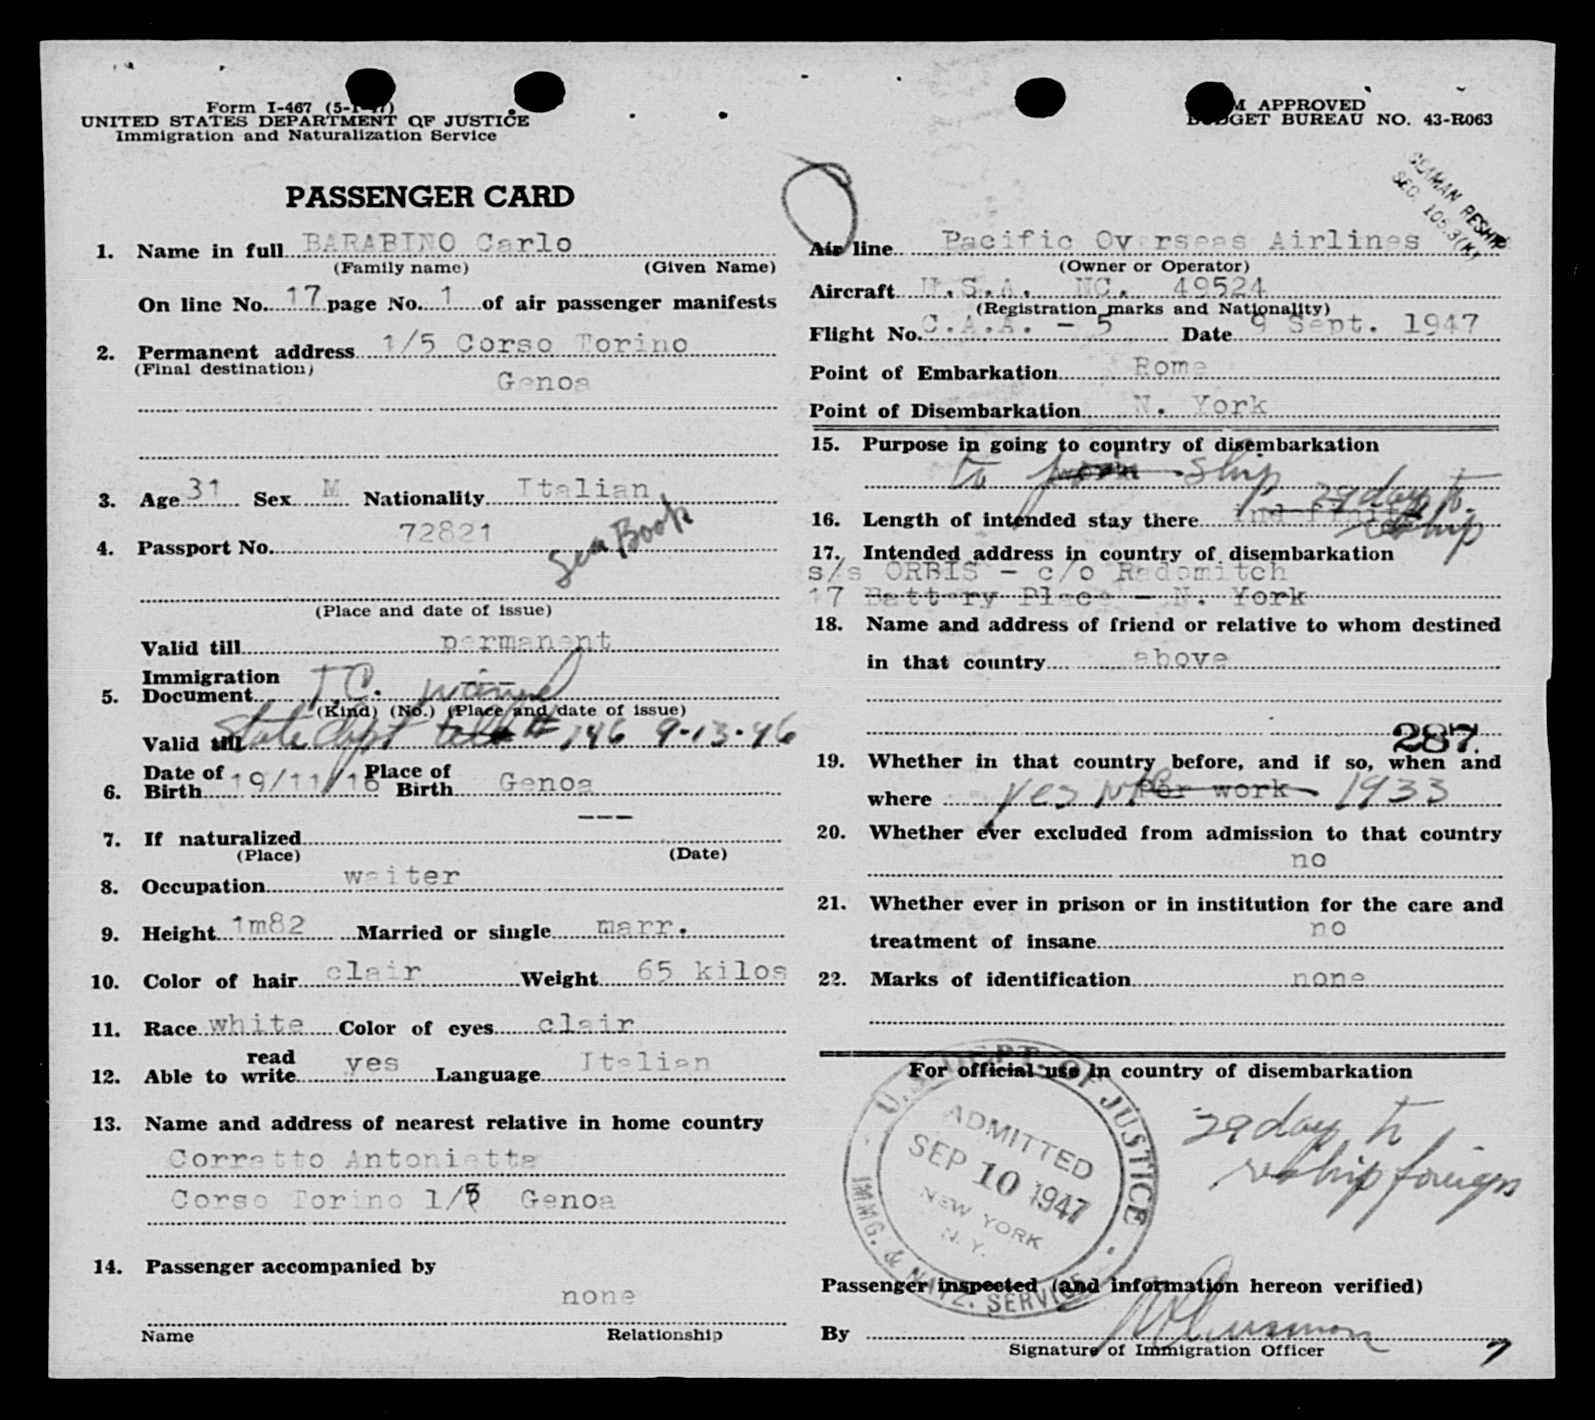 Form I-467 (5-1-47)
UNITED STATES DEPARTMENT OF JUSTICE
Immigration and Naturalization Service
M APPROVED
BUDGET BUREAU NO. 43-R063
SEAMAN RESHIP
SEC. 105.3(K)
PASSENGER CARD
1. Name in full BARABINO Carlo
(Family name) (Given Name)
On line No. 17 page No. 1 of air passenger manifests
2. Permanent address 1/5 Corso Torino
(Final destination)
Genoa
3. Age 31 Sex M Nationality Italian
4. Passport No. 72821
Sea Book
(Place and date of issue)
Valid till permanent
5. Immigration Document T.C. waived
(Kind) (No.) (Place and date of issue)
Valid till State Dept # 746 9-13-46
6. Date of Birth 19/11/16 Place of Birth Genoa
7. If naturalized ---
(Place) (Date)
8. Occupation waiter
9. Height 1m82 Married or single marr.
10. Color of hair clair Weight 65 kilos
11. Race white Color of eyes clair
12. Able to read write yes Language Italian
13. Name and address of nearest relative in home country
Corratto Antonietta
Corso Torino 1/5 Genoa
14. Passenger accompanied by
none
Name Relationship
Air line Pacific Overseas Airlines
(Owner or Operator)
Aircraft U.S.A. NC. 49524
(Registration marks and Nationality)
Flight No. C.A.A. - 5 Date 9 Sept. 1947
Point of Embarkation Rome
Point of Disembarkation N. York
15. Purpose in going to country of disembarkation
to ship
16. Length of intended stay there 29 days to reship
17. Intended address in country of disembarkation
s/s ORBIS - c/o Radomitch
17 Battery Place - N. York
18. Name and address of friend or relative to whom destined
in that country above
287
19. Whether in that country before, and if so, when and
where yes NYC for work 1933
20. Whether ever excluded from admission to that country
no
21. Whether ever in prison or in institution for the care and
treatment of insane no
22. Marks of identification none
For official use in country of disembarkation
U.S. DEPT. OF JUSTICE
ADMITTED
SEP 10 1947
NEW YORK
N. Y.
IMMG. & NATZ. SERVICE
29 days to
reship foreign
Passenger inspected (and information hereon verified)
By
Signature of Immigration Officer
7